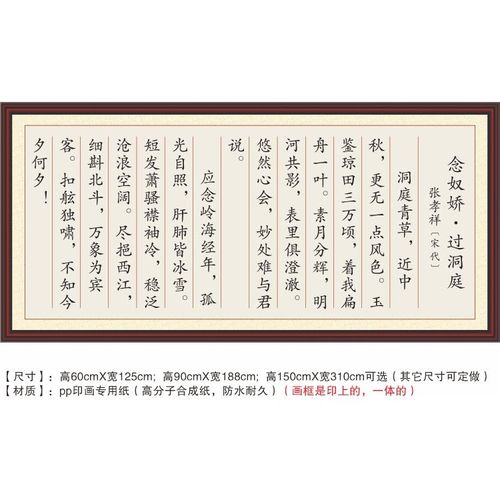 念奴娇·过洞庭
张孝祥〔宋代〕
洞庭青草，近中
秋，更无一点风色。玉
鉴琼田三万顷，着我扁
舟一叶。素月分辉，明
河共影，表里俱澄澈。
悠然心会，妙处难与君
说。
应念岭海经年，孤
光自照，肝肺皆冰雪。
短发萧骚襟袖冷，稳泛
沧浪空阔。尽挹西江，
细斟北斗，万象为宾
客。扣舷独啸，不知今
夕何夕！
【尺寸】：高60cmX宽125cm；高90cmX宽188cm；高150cmX宽310cm可选（其它尺寸可定做）
【材质】：pp印画专用纸（高分子合成纸，防水耐久）（画框是印上的，一体的）